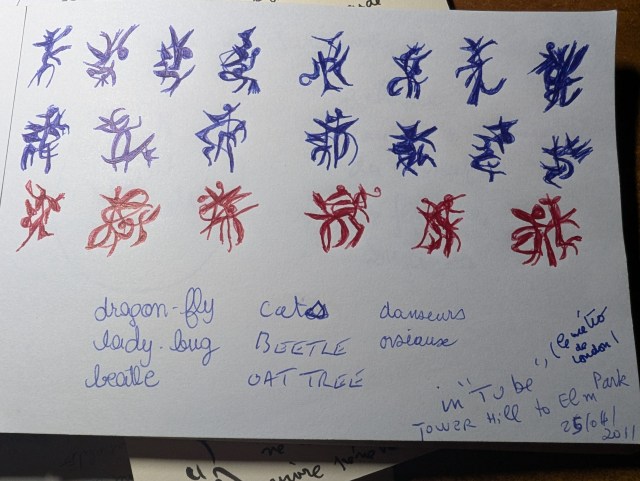 dragon-fly cats danseurs
lady-bug BEETLE oiseaux
beatle OAT TREE
in "Tube", (le métro de London)
TOWER Hill to Elm Park
25/04/2011
ne